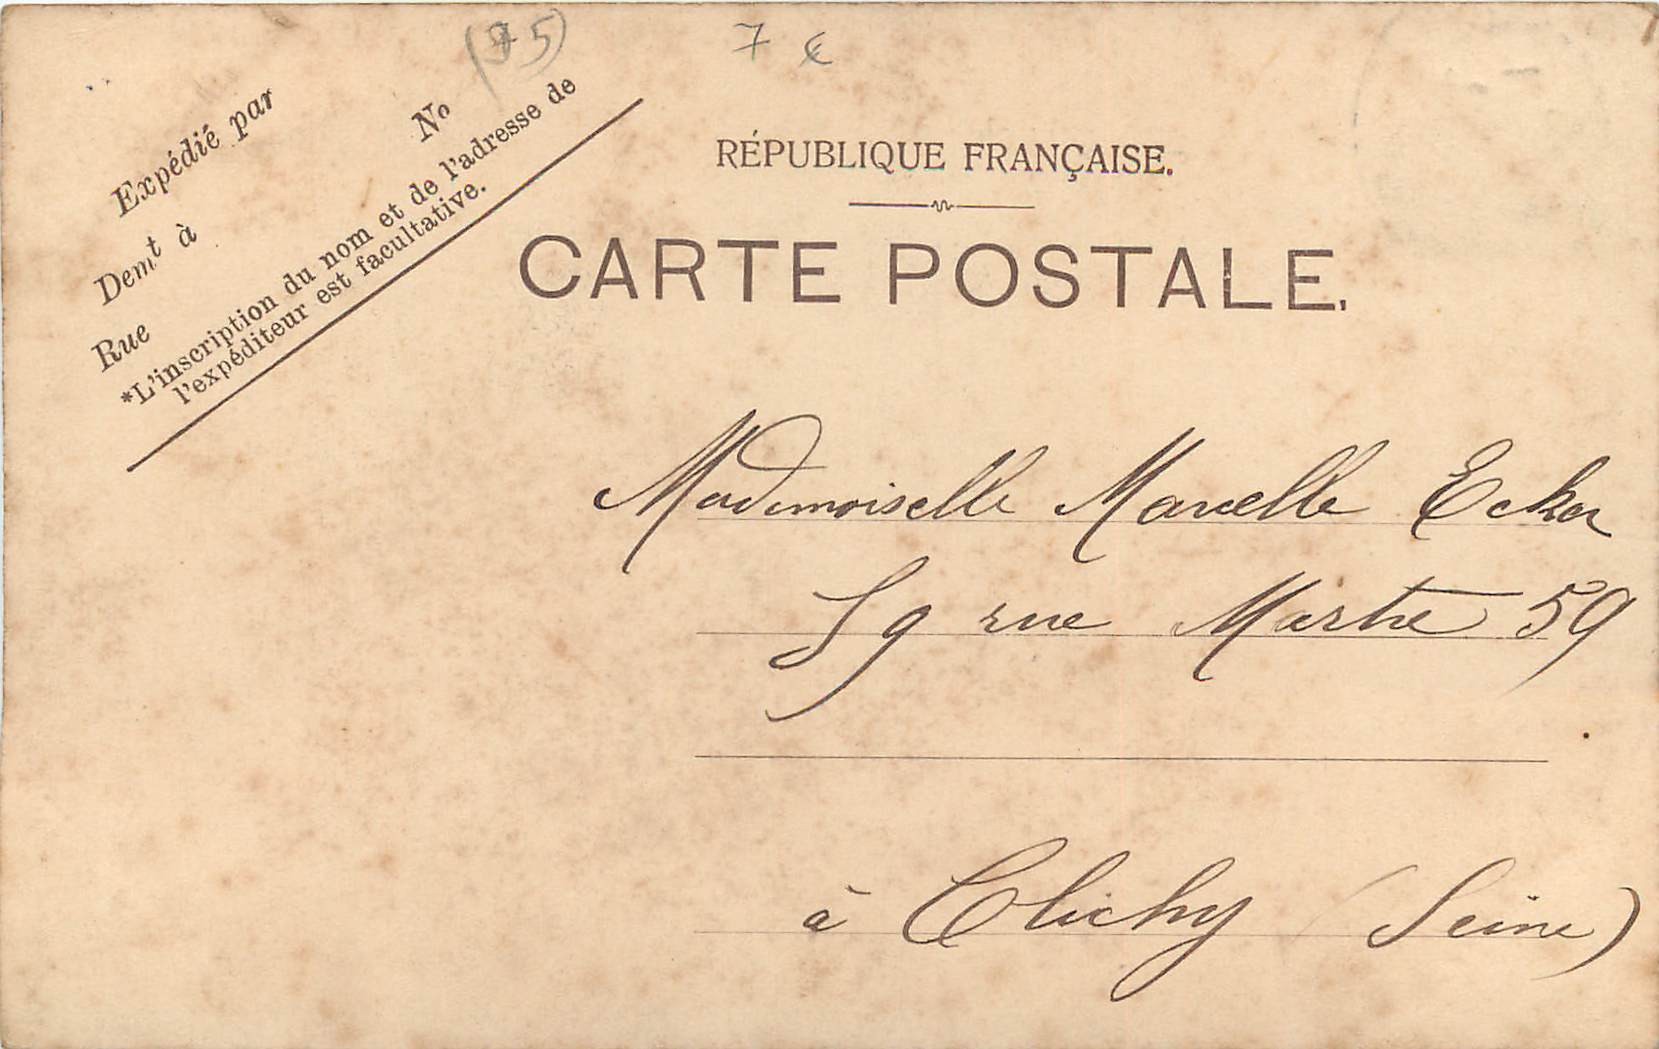 (75)
7 €
Expédié par
Demt à
No
Rue
*L'inscription du nom et de l'adresse de
l'expéditeur est facultative.
RÉPUBLIQUE FRANÇAISE.
CARTE POSTALE.
Mademoiselle Marcelle Ecker
59 rue Martre 59
à Clichy (Seine)